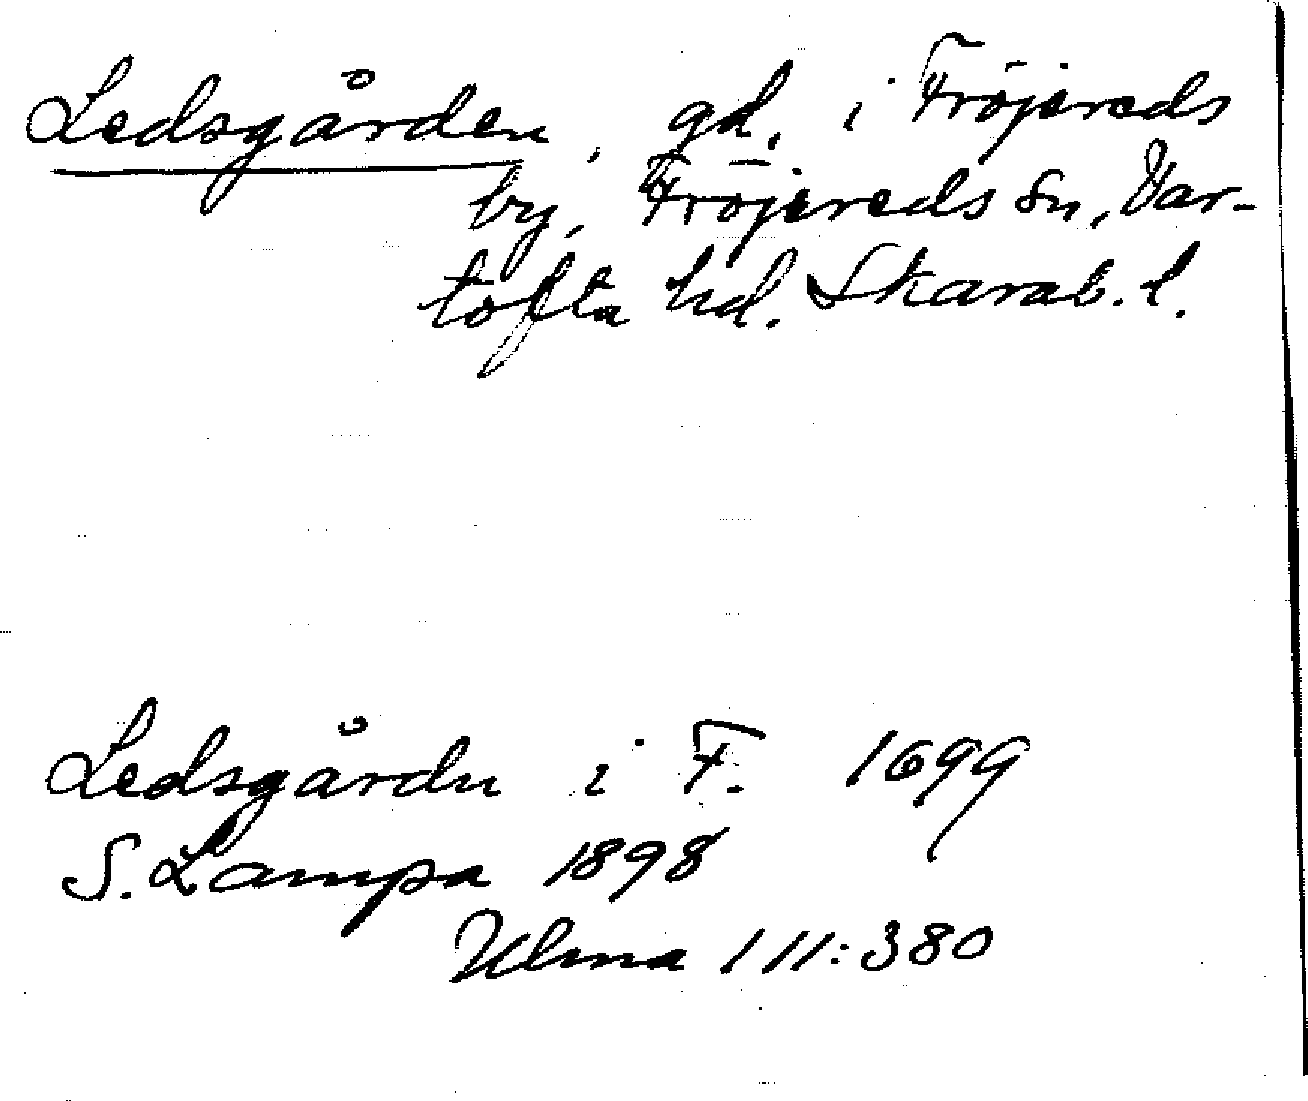 Ledsgården, gd. i Fröjereds
by, Fröjereds sn, Var-
tofta hd. Skarab. l.
Ledsgårdn i F. 1699
S. Lampa 1898
Ulma 111:380